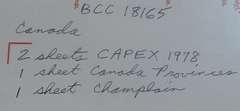 BCC 18165
Canada
2 sheets CAPEX 1978
1 sheet Canada Provinces
1 sheet Champlain